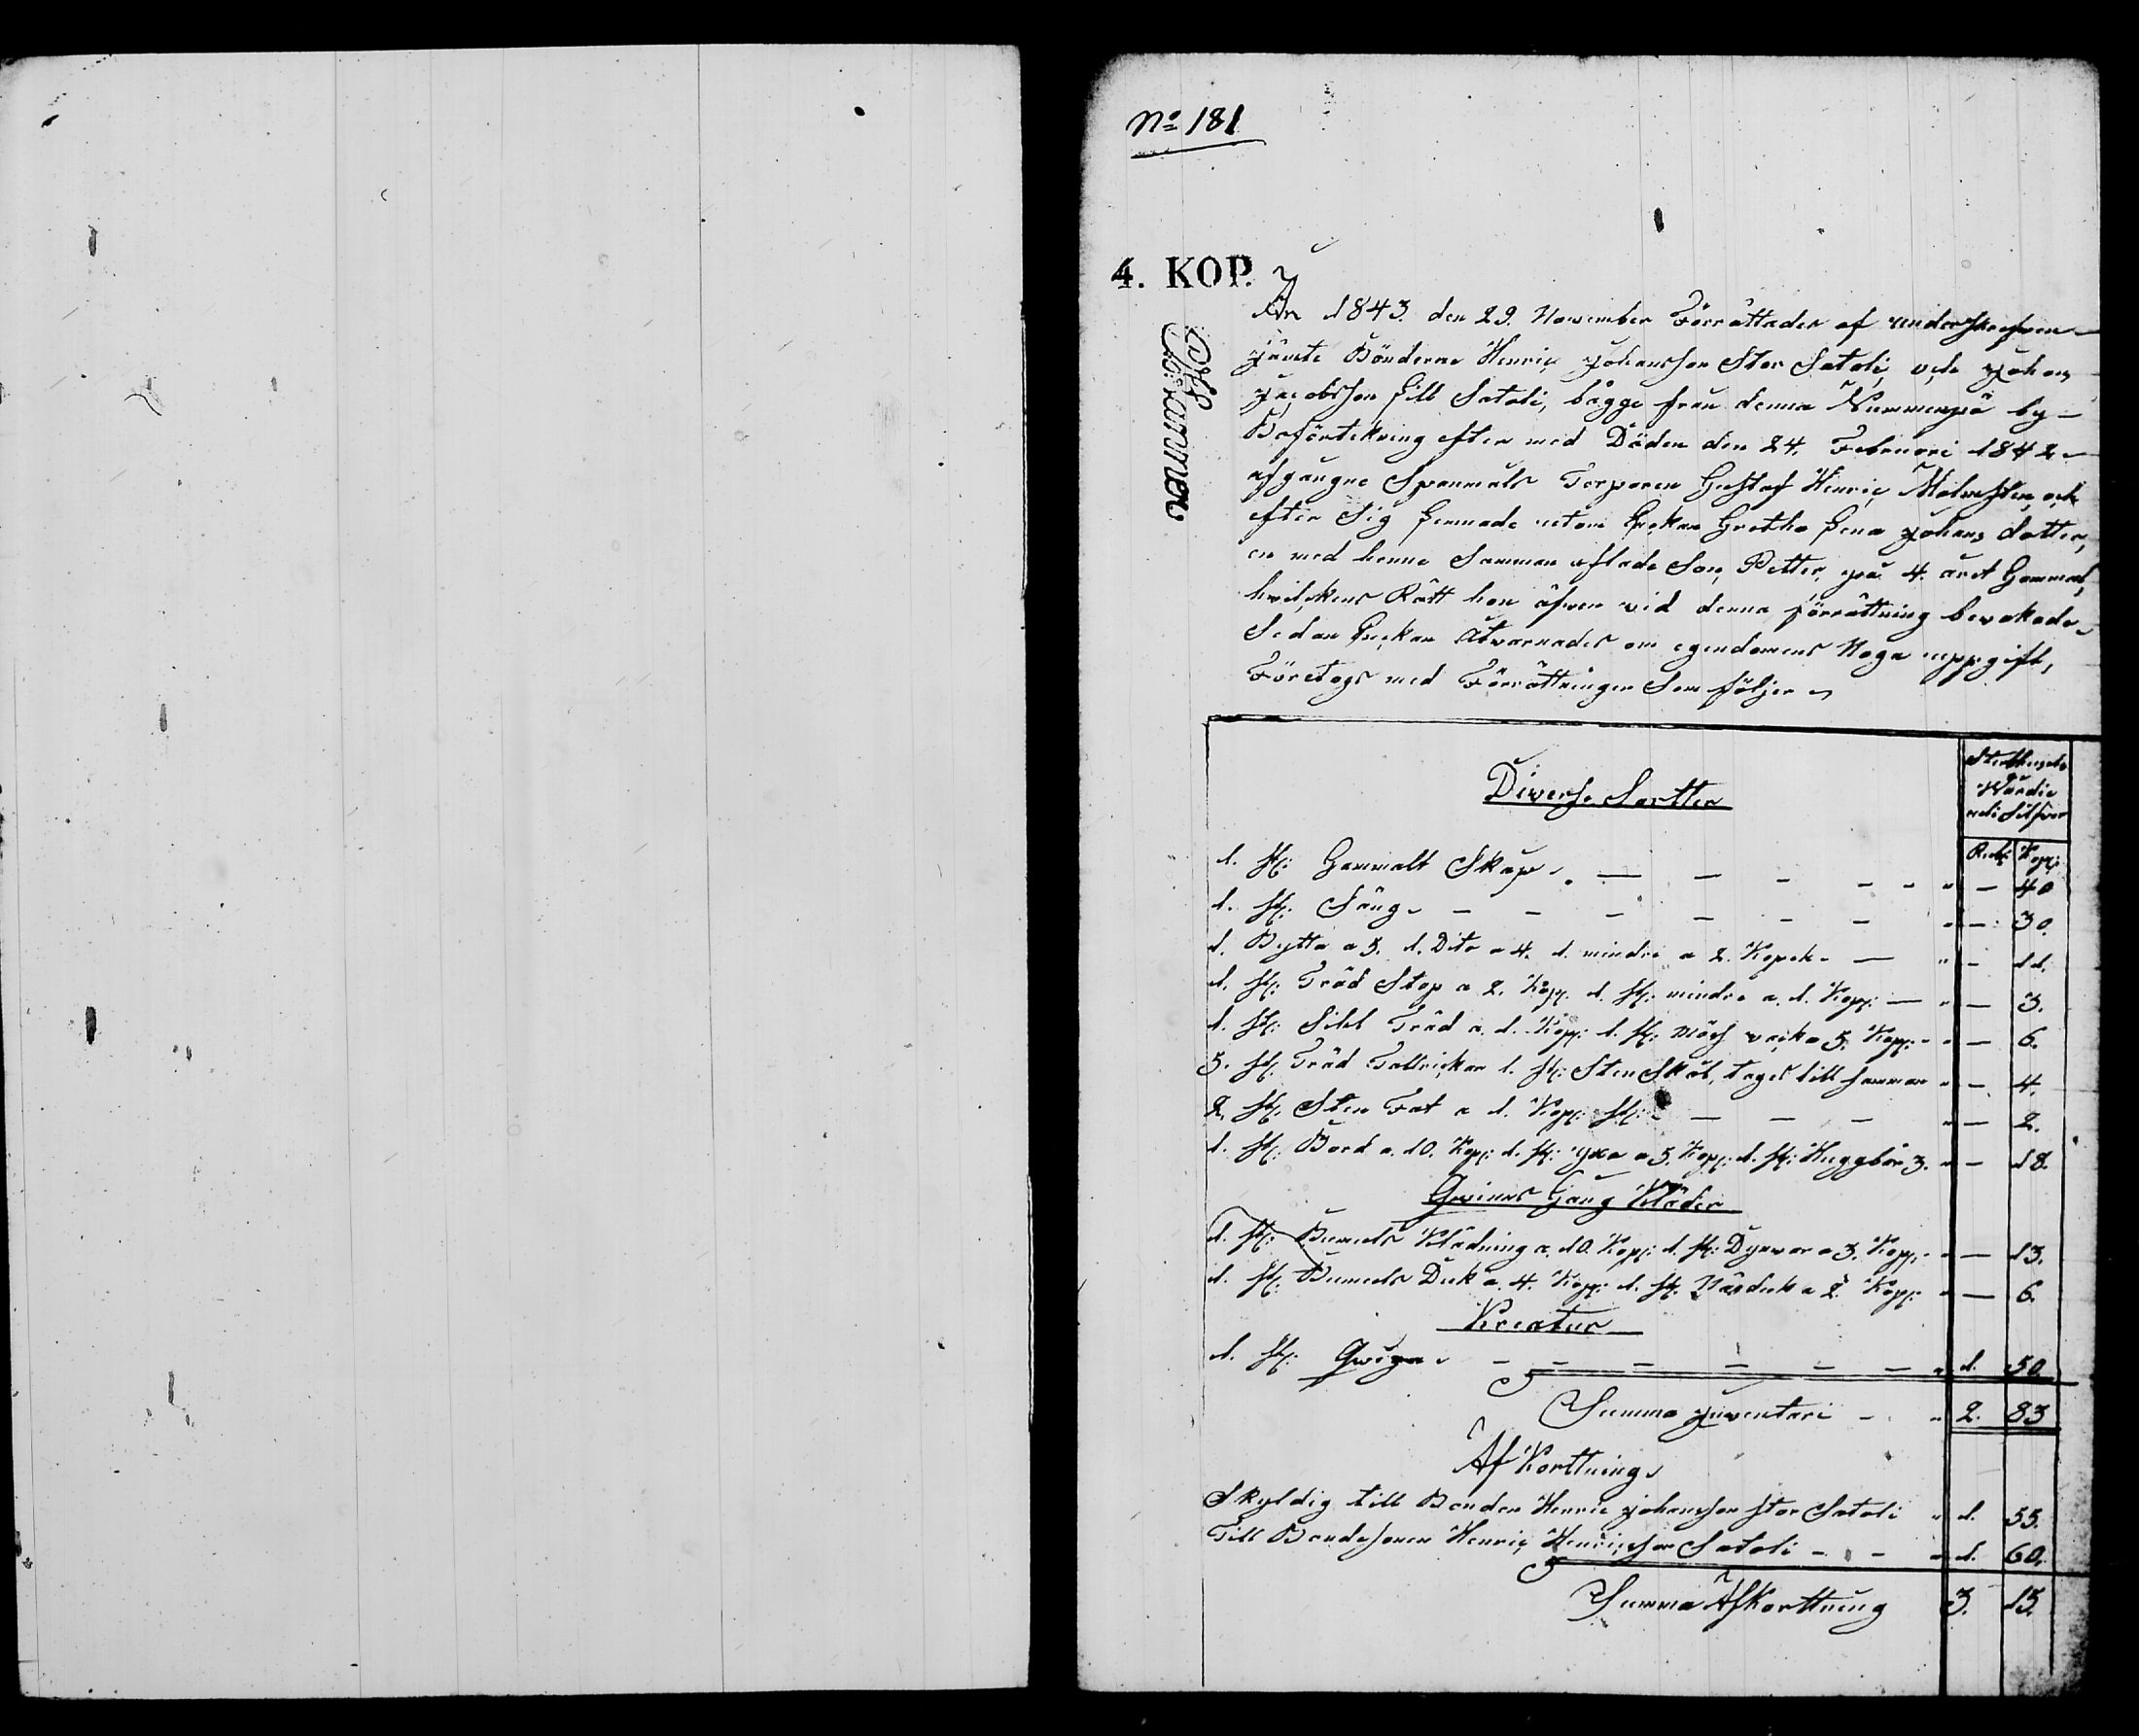 No 181
4. KOP.
År 1843. den 29. November Förrättades af underskrefven
jämte Bönderne Henric Johansson Stor Satoli, och Johan
Jacobsson Lill Satoli, bägge från denna Nummenpä by
Boförtekning efter med Döden den 24. Februari 1842
afgångne Spanmåls Torparen Gustaf Henric Malmsten, och
efter sig Lemnade utom Enkan Gretha Lena Johans dotter,
en med henne Samman aflade Son, Petter, på 4. året Gammal,
hvilckens Rätt hon äfwen vid denna förrättning bevakade
Sedan Enckan Åtvarnades om egendomens Noga uppgift,
Företogs med Förrättningen Som följer
Diverse Sortter
Wärdie
uti Silfver
Rub: Kop:
1. st: Gammalt Skåp — 40
1. st: Säng — 30.
1. Bytta a 5. 1. Dito a 4. 1. mindre a 2. Kopek — 11.
1. st: Träd Stop a 2. Kop: 1. st: mindre a. 1. Kop: — 3.
1. st: Sikt Träd a. 1. Kop: 1. st: a 5. Kop: — 6.
5. st: Träd Tallrickar 1. st: Sten Skål, tages till samman — 4.
2. st: Sten Fat a 1. Kop: st: — 2.
1. st: Bord a. 10. Kop: 1. st: yxa a 5. Kop: 1. st: Huggbår 3. — 18.
Qwinns Gång Kläder
1. st: Bumuls Klädning a. 10. Kop: 1. st: a 3. Kop: — 13.
1. st: Bumuls Duk a. 4. Kop: 1. st: Näsduk a 2. Kop: — 6.
Kreatur
1. st: Qwiga 1. 50
Summa Inventari 2. 83
Af Korttning
Skyldig till Bonden Henric Johansson Stor Satoli 1. 55.
Till Bondesonen Henric Henricsson Satoli 1. 60.
Summa Afkorttning 3. 15.